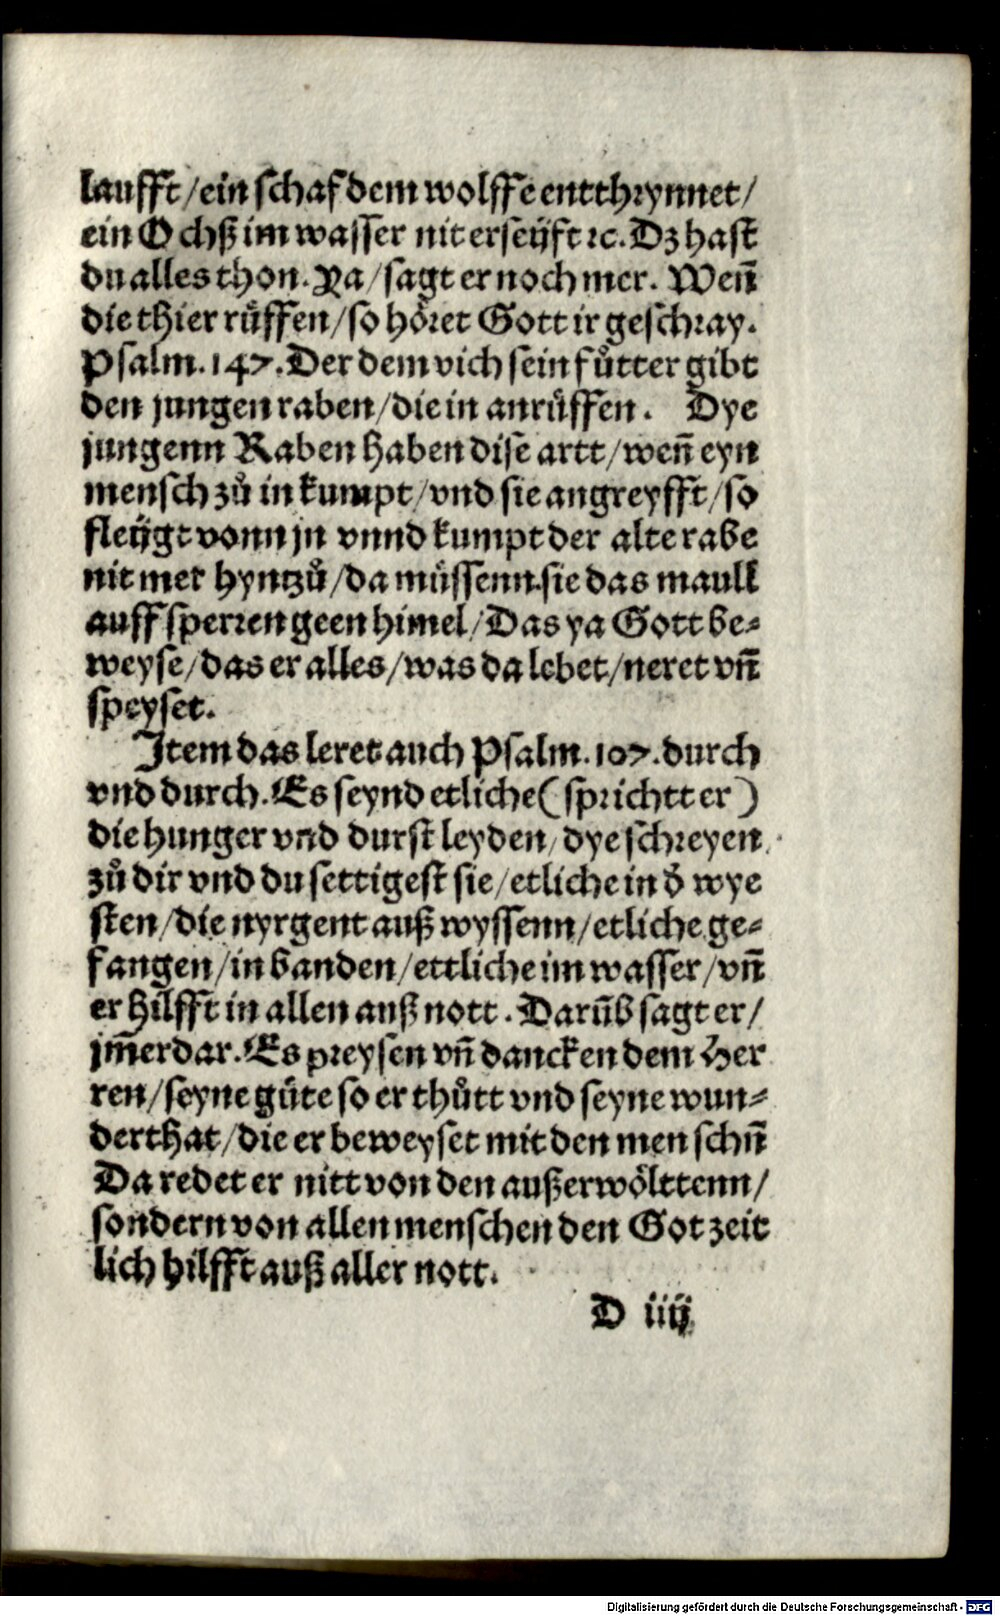 laufft/ein schaf dem wolffe entthrynnet/
ein Ochß im wasser nit erseÿft ꝛc. Dz hast
du alles thon. Ya/sagt er noch mer. Wen̄
die thier rüffen/so höret Gott ir geschray.
Psalm. 147. Der dem vich sein fůtter gibt
den jungen raben/die in anrüffen. Dye
jungenn Raben haben dise artt/wen̄ eyn
mensch zů in kumpt/vnd sie angreyfft/so
fleÿgt vonn jn vnnd kumpt der alte rabe
nit mer hyntzů/da müssenn sie das maull
auff sperren geen himel/Das ya Gott be⸗
weyse/das er alles/was da lebet/neret vn̄
speyset.
Item das leret auch Psalm. 107. durch
vnd durch. Es seynd etliche (sprichtt er)
die hunger vnd durst leyden/dye schreyen
zů dir vnd du settigest sie/etliche in d̕ wye
sten/die nyrgent auß wyssenn/etliche ge⸗
fangen/in banden/ettliche im wasser/vn̄
er hilfft in allen auß nott. Darūb sagt er/
jm̄erdar. Es preysen vn̄ dancken dem Her
ren/seyne güte so er thůtt vnd seyne wun⸗
derthat/die er beweyset mit den menschn̄
Da redet er nitt von den außerwölttenn/
sondern von allen menschen den Got zeit
lich hilfft auß aller nott.
D iiij
Digitalisierung gefördert durch die Deutsche Forschungsgemeinschaft - DFG